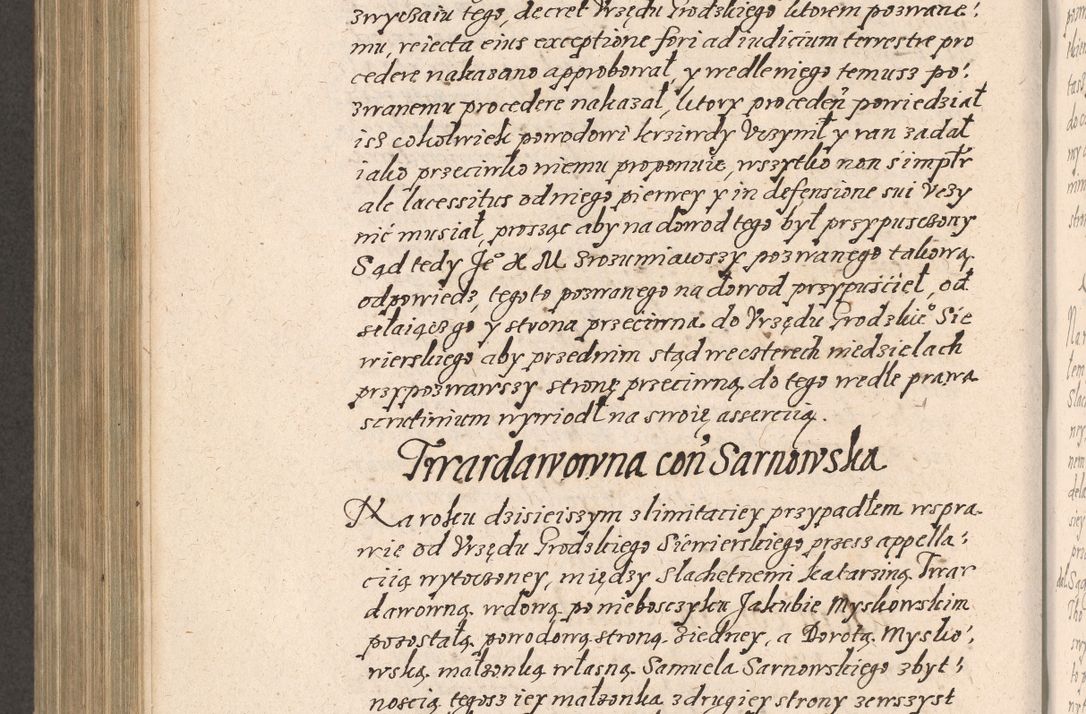 zwyczaiu tego, decret Vrzędu Grodzkiego ktorem pozwane:
mu, reiecta eius exceptione fori ad iudicium terrestre pro
cedere nakazano approbował, y wedle niego temusz po:
zwanemu procedere nakazał, ktory proceden powiedział
isz cokolwiek powodowi krziwdy Vczynił y ran zadał
iako przeciwko niemu proponuie, wszytko non simplr
ale lacessitus od niego pierwey y in defensione sui Vczy
nić musiał, prosząc aby na dowod tego był przypuszczony
Sąd tedy Je° X M zrozumiawszy pozwanego takową
odpowiedz, tegoto pozwanego na dowod przypuściel, od
sełaiącz go y strona przeciwna do Vrzędu Grodzkie° Sie
wierskiego aby przednim stąd we czterech niedzielach
przypozwawszy stronę przeciwną do tego wedle prawa
scrutinium wywiodł na swoię assertią.
Twardawowna con Sarnowska
Na roku dzisieiszym z limitatiey przypadłem wspra-
wie od Vrzędu Grodzkiego Siewierskiego przesz appella:
ciią wytoczoney, między Slachetnemi Katarziną Twar
dawowną wdową po nieboszczyku Jakubie Myskowskim
pozostałą powodową stroną ziedney, a Dorotą Mysko:
wską małżonką własną Samuela Sarnowskiego z byt:
nością tegosz iey małżonka z drugiey strony zewszyst